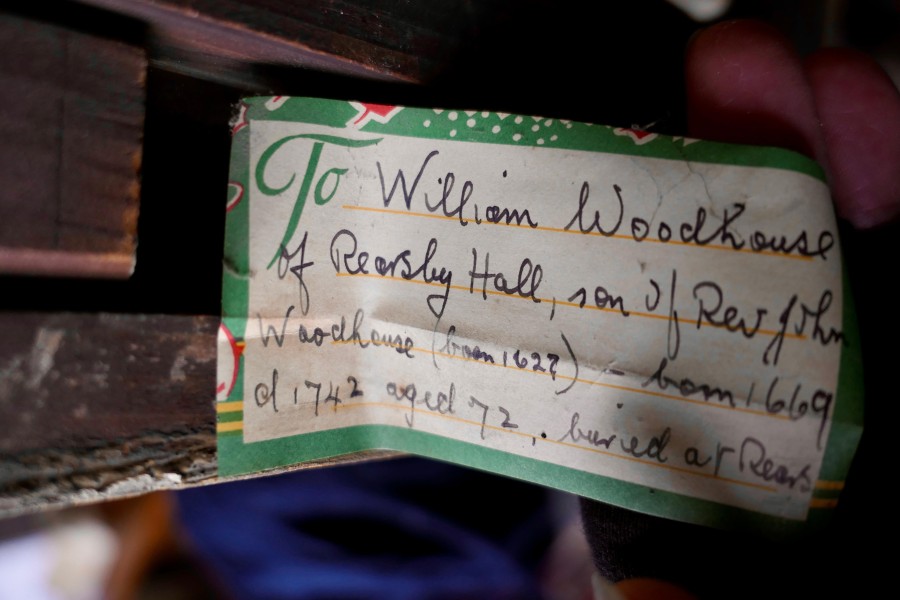 To William Woodhouse
of Rearsby Hall, son of Rev John
Woodhouse (born 1627) - born 1669
d 1742 aged 72, . buried at Rears